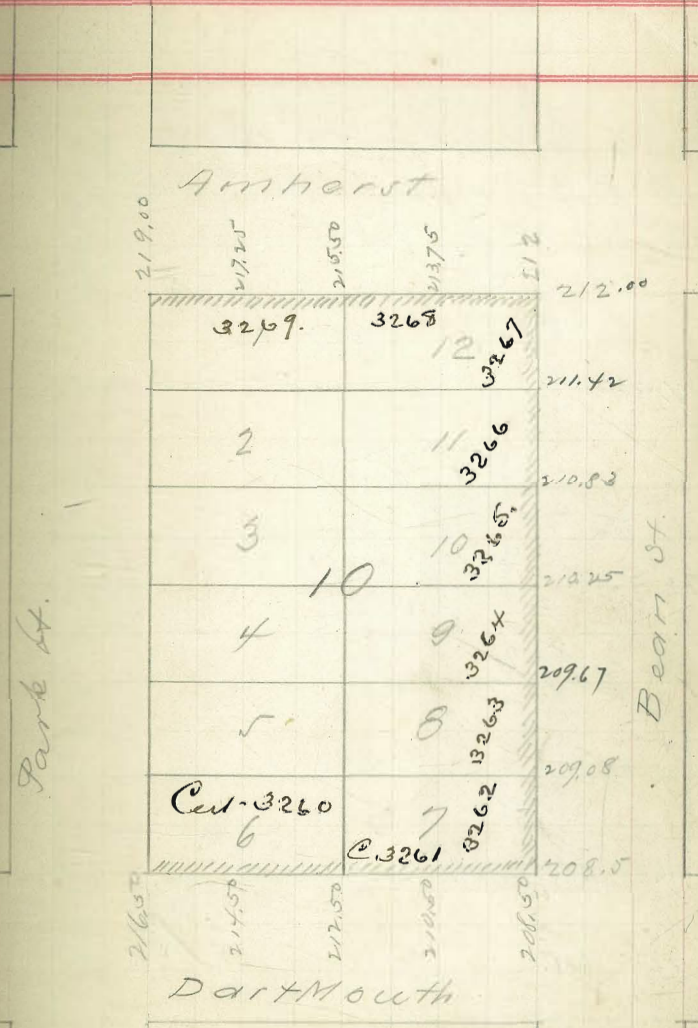 Amherst
219.00
217.25
215.50
213.75
212
212.00
3269.
3268
12
3267
211.42
2
11
3266
210.83
3
10
3265.
10
210.25
4
9
3264
209.67
5
8
3263
209.08
Cert-3260
6
7
3262
C.3261
208.5
216.50
214.50
212.50
210.50
208.50
DartMouth
Park St.
Bean St.